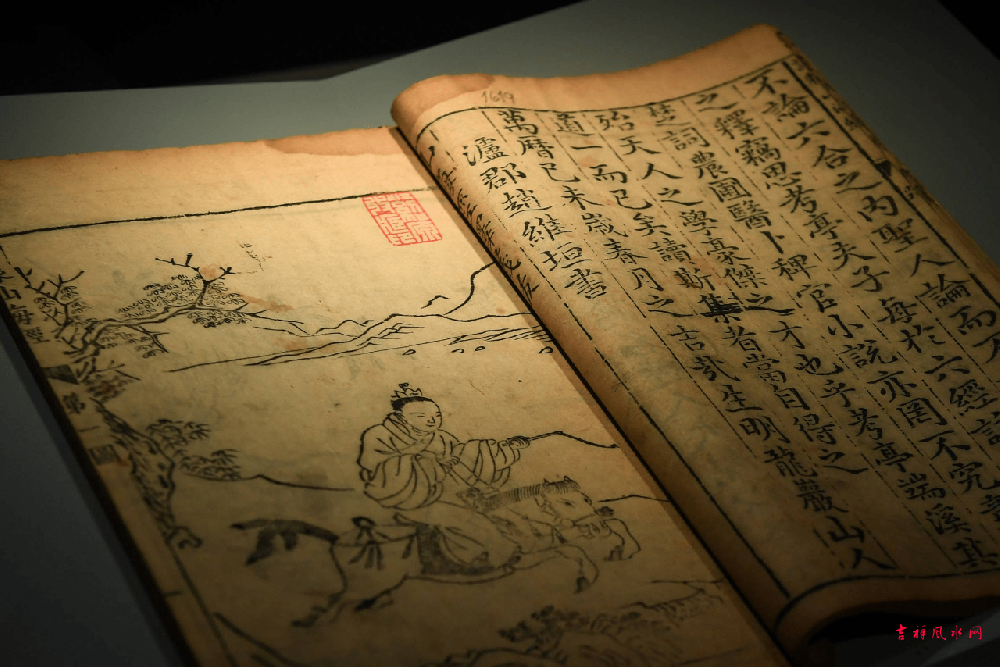 1619
不論六合之内聖人論而不
之釋竊思考亭夫子每於六經
楚詞農圃醫卜稗官小説亦罔不究
殆天人之學豪傑之才也乎考亭端溪其
道一而已矣讀斯集者當自得之
萬曆已未歲春月之吉哉生明龍巖山人
瀘郡趙維垣書
山海經
第一圖
吉祥風水网